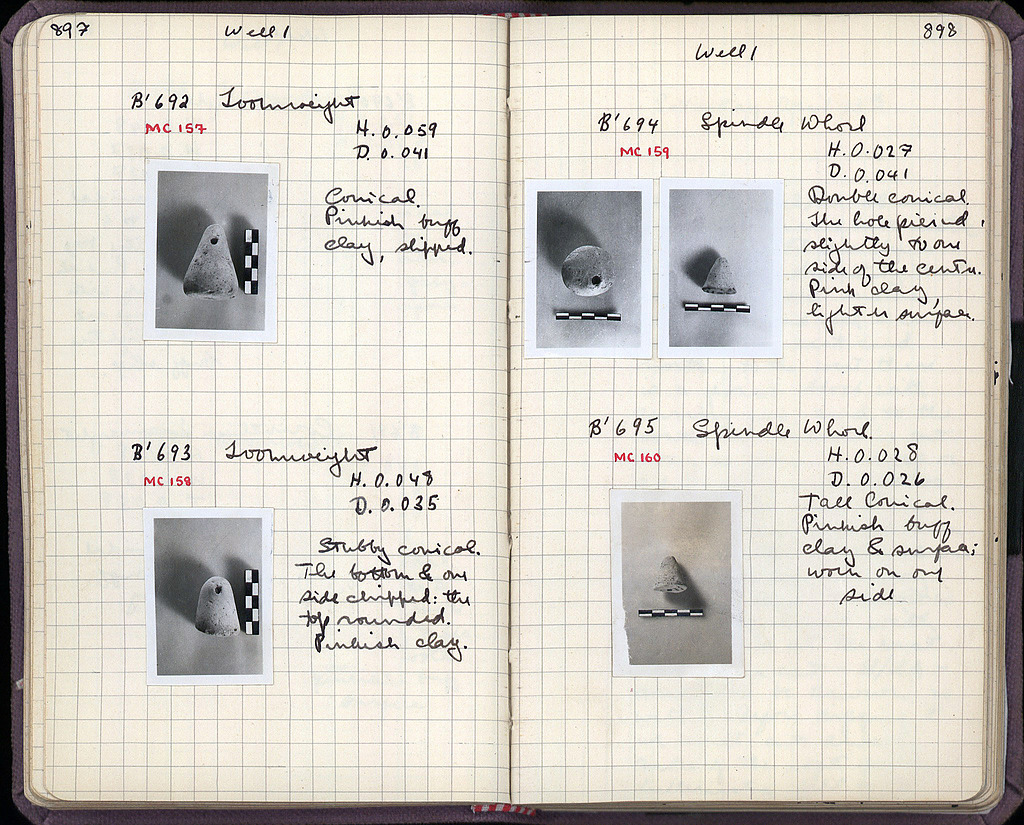 897
Well 1
B' 692 Loomweight
MC 157
H. 0.059
D. 0.041
Conical.
Pinkish buff
clay, slipped.
B' 693 Loomweight
MC 158
H. 0.048
D. 0.035
Stubby conical.
The bottom & one
side chipped: the
top rounded.
Pinkish clay.
898
Well 1
B' 694 Spindle Whorl
MC 159
H. 0.027
D. 0.041
Double conical.
The hole pierced
slightly to one
side of the centre.
Pink clay,
lighter surface.
B' 695 Spindle Whorl.
MC 160
H. 0.028
D. 0.026
Tall Conical.
Pinkish buff
clay & surface;
worn on one
side